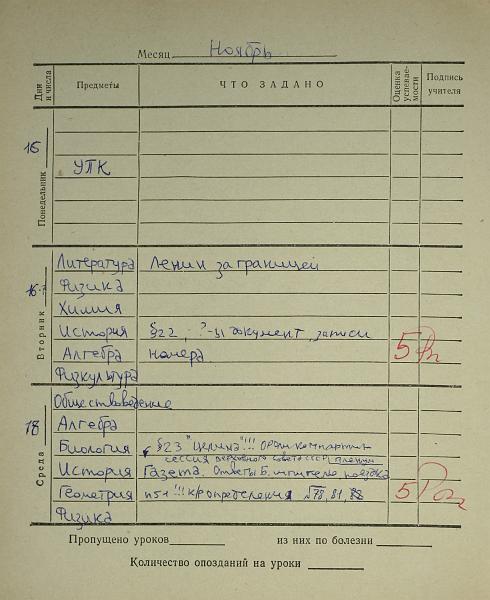 Месяц Ноябрь
Дни и числа Предметы ЧТО ЗАДАНО Оценка успевае-мости Подпись учителя
Понедельник
16
УПК
Вторник
Литература Ленин за границей
Физика
Химия
История §22, ?-ы документ, записи
Алгебра номера 5
Физкультура
Среда
18
Обществоведение
Алгебра
Биология §23 "Целина"!!!
сессия верховного совета СССР, пленум
История Газета. Ответы Б.
Геометрия п51 !!! к/р определения №78, 81, 82 5
Физика
Пропущено уроков из них по болезни
Количество опозданий на уроки